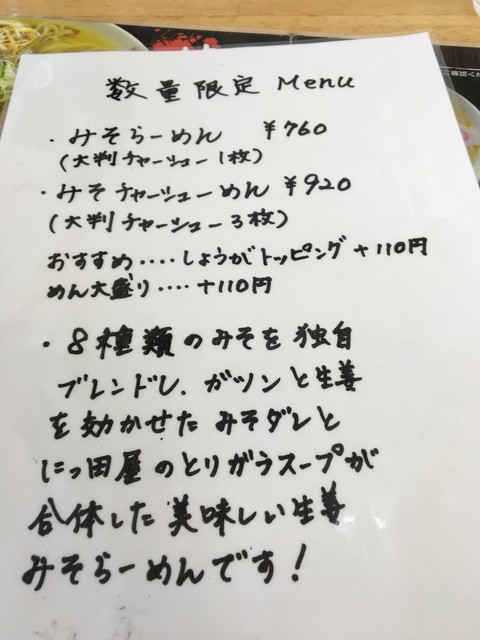 数量限定 Menu
・みそらーめん ¥760
(大判チャーシュー1枚)
・みそチャーシューめん ¥920
(大判チャーシュー3枚)
おすすめ‥‥しょうがトッピング +110円
めん大盛り‥‥+110円
・8種類のみそを独自
ブレンドし、ガツンと生姜
を効かせたみそダレと
にっ田屋のとりガラスープが
合体した美味しい生姜
みそらーめんです!